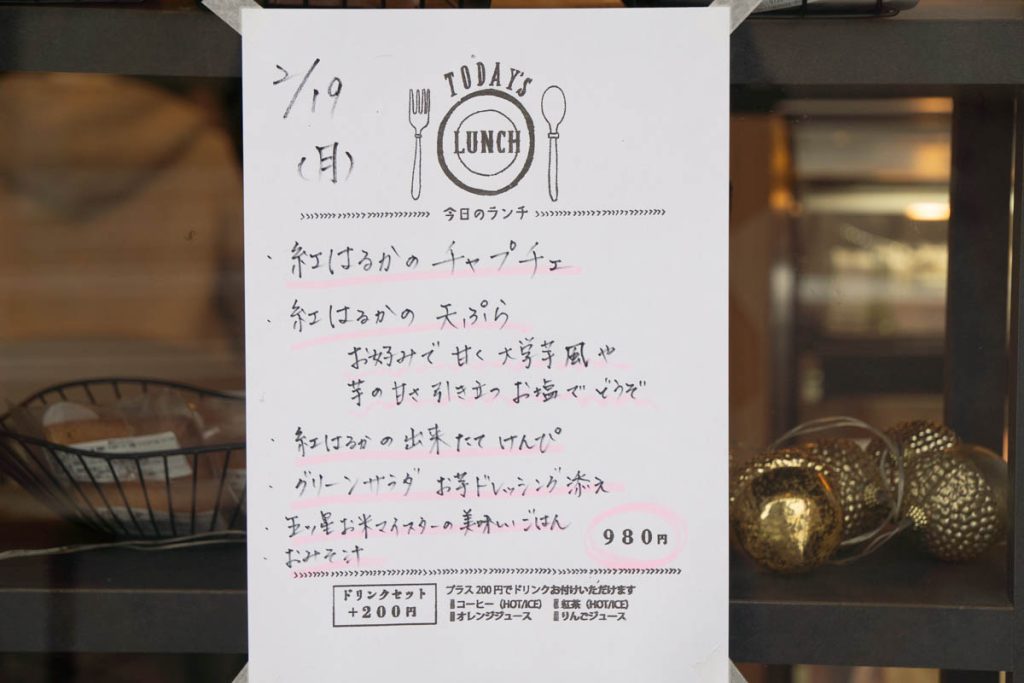 2/19
(月)
TODAY'S
LUNCH
今日のランチ
・紅はるかのチャプチェ
・紅はるかの 天ぷら
お好みで 甘く 大学芋風や
芋の甘さ引き立つ お塩でどうぞ
・紅はるかの出来たてけんぴ
・グリーンサラダ お芋ドレッシング添え
・五ッ星お米マイスターの美味しいごはん
・おみそ汁
980円
ドリンクセット
+200円
プラス200円でドリンクお付けいただけます
コーヒー (HOT/ICE) 紅茶 (HOT/ICE)
オレンジジュース りんごジュース